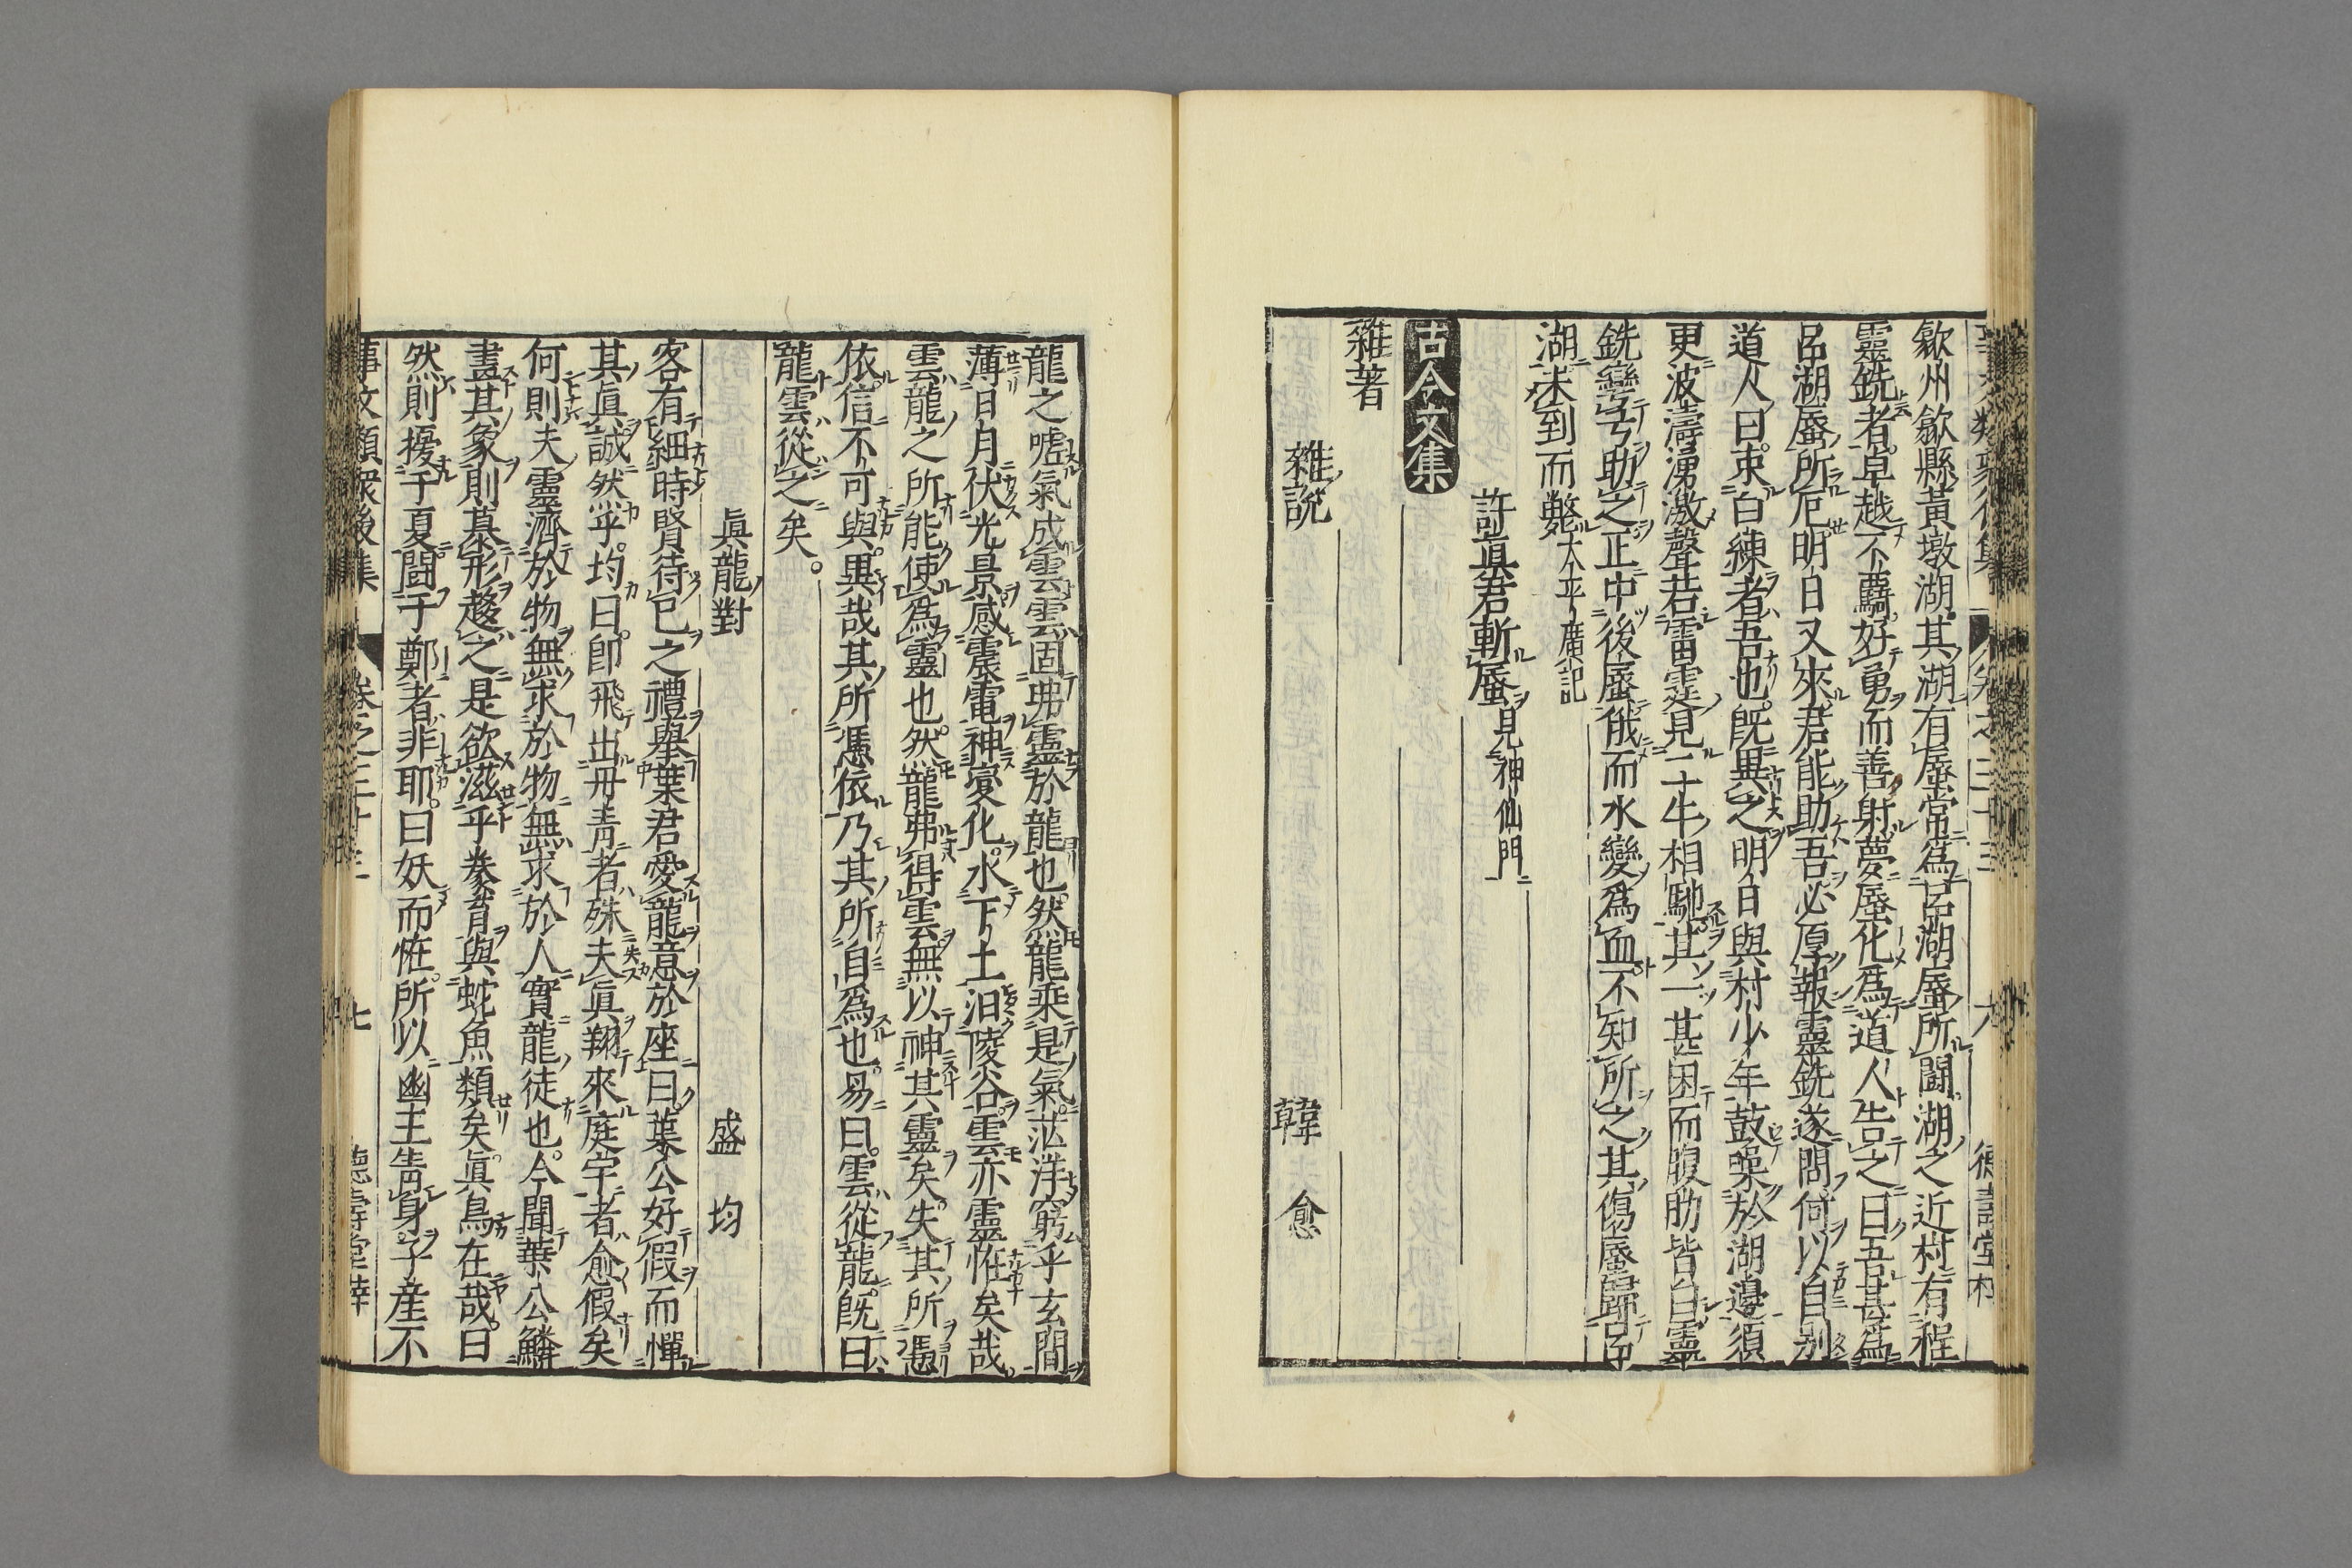 歙州歙縣黃墩湖其湖有蜃常爲呂湖蜃所鬪湖之近村有程
靈銑者卓越不羈好勇而善射夢蜃化爲道人告之曰吾甚爲
呂湖蜃所厄明日又來君能助吾必厚報靈銑遂問何以自別
道人曰束白練者吾也旣異之明日與村少年鼓噪於湖邊須
更波濤湧激聲若雷霆見二牛相馳其一甚困而腹肋皆白靈
銑彎弓助之正中後蜃俄而水變爲血不知所之其傷蜃歸呂
湖未到而斃太平廣記
許眞君斬蜃見神仙門
古今文集
雜著
雜說 韓愈
龍之噓氣成雲雲固弗靈於龍也然龍乘是氣茫洋窮乎玄間
薄日月伏光景感震電神變化水下土汩陵谷雲亦靈怪矣哉
雲龍之所能使爲靈也然龍弗得雲無以神其靈矣失其所憑
依信不可與異哉其所憑依乃其所自爲也易曰雲從龍旣曰
龍雲從之矣。
眞龍對 盛均
客有細時賢待已之禮擧葉君愛龍意於座曰葉公好假而憚
其眞誠然乎均曰卽飛出丹靑者殊夫眞翔來庭宇者愈假矣
何則夫靈濟於物無求於物無求於人實龍徒也今聞葉公鱗
畫其象則慕形趍之是欲滋乎豢育與蛇魚類矣眞烏在哉曰
然則擾于夏鬪于鄭者非耶曰妖而怪所以幽王眚身子產不
事文類聚後集 卷之三十三 七 德壽堂梓